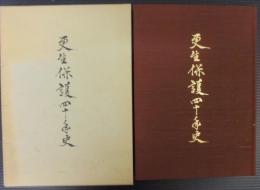 更生保護四十年史
更生保護四十年史